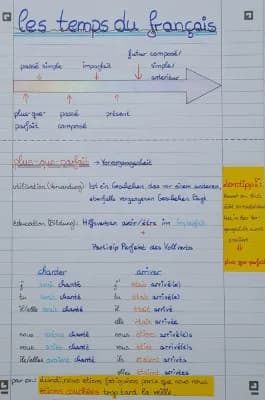 les temps du français
futur composé/
passé simple imparfait simple/
antérieur
plus-que- passé présent
parfait composé
plus-que-parfait → Vorvergangenheit
utilisation (Verwendung): Ist ein Geschehen, das vor einem anderen,
ebenfalls vergangenen Geschehen liegt
Education (Bildung): Hilfsverben avoir/être im imparfait
+
Partizip Perfekt des Vollverbs
Lerntipp:
plus-que-parfait
chanter arriver
j' avais chanté j' étais arrivé(e)
tu avais chanté tu étais arrivé(e)
il/elle avait chanté il était arrivé
elle était arrivée
nous avions chanté nous étions arrivé(e)s
vous aviez chanté vous étiez arrivé(e)s
ils/elles avaient chanté ils étaient arrivés
elles étaient arrivées
par ex.: Lundi, nous étions fatiguées parce que nous nous
étions couchées trop tard la veille.